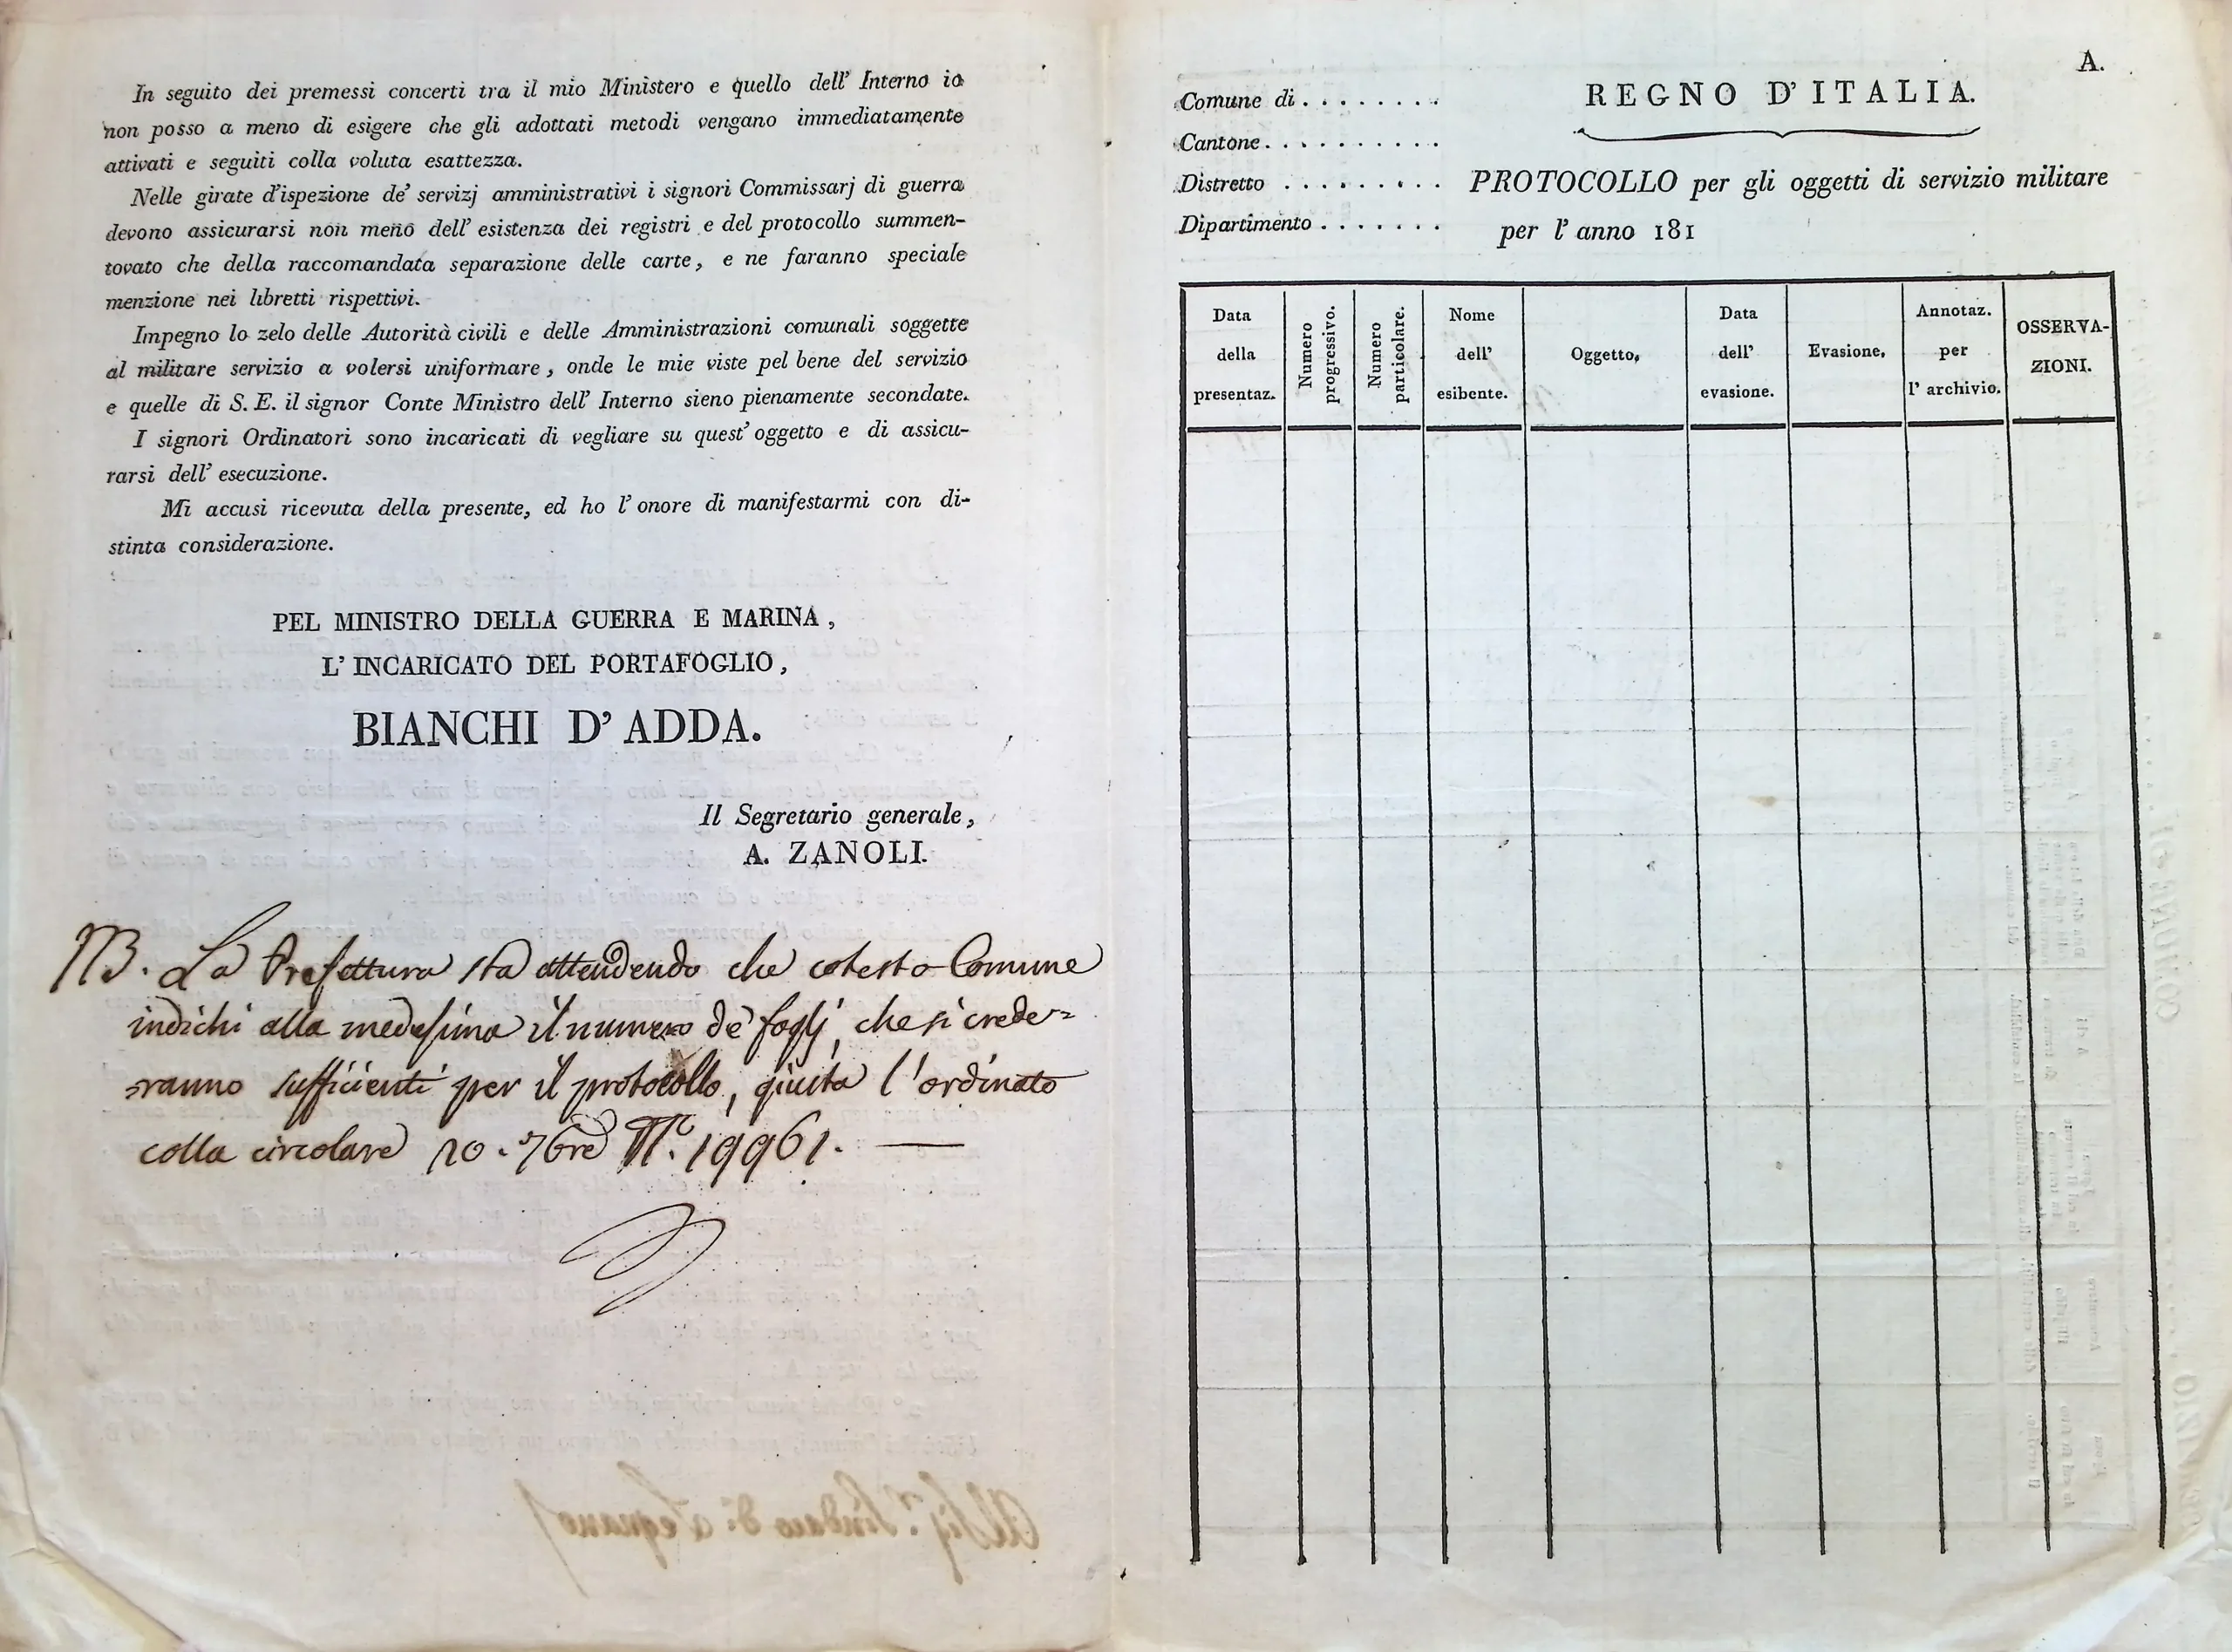 In seguito dei premessi concerti tra il mio Ministero e quello dell' Interno io
non posso a meno di esigere che gli adottati metodi vengano immediatamente
attivati e seguiti colla voluta esattezza.
Nelle girate d'ispezione de' servizj amministrativi i signori Commissarj di guerra
devono assicurarsi non meno dell' esistenza dei registri e del protocollo summen-
tovato che della raccomandata separazione delle carte, e ne faranno speciale
menzione nei libretti rispettivi.
Impegno lo zelo delle Autorità civili e delle Amministrazioni comunali soggette
al militare servizio a volersi uniformare, onde le mie viste pel bene del servizio
e quelle di S. E. il signor Conte Ministro dell' Interno sieno pienamente secondate.
I signori Ordinatori sono incaricati di vegliare su quest' oggetto e di assicu-
rarsi dell' esecuzione.
Mi accusi ricevuta della presente, ed ho l' onore di manifestarmi con di-
stinta considerazione.
PEL MINISTRO DELLA GUERRA E MARINA,
L' INCARICATO DEL PORTAFOGLIO,
BIANCHI D' ADDA.
Il Segretario generale,
A. ZANOLI.
NB. La Prefettura sta attendendo che cotesto Comune
indichi alla medesima il numero de' foglj, che si crede-
ranno sufficienti per il protocollo, giusta l'ordinato
colla circolare 10. 7bre N.° 19961.
Al Sig.r Sindaco di Legnano
A.
Comune di . . . . . . . .
Cantone . . . . . . . . . .
Distretto . . . . . . . . .
Dipartimento . . . . . . .
REGNO D' ITALIA.
PROTOCOLLO per gli oggetti di servizio militare
per l' anno 181
Data della presentaz.
Numero progressivo.
Numero particolare.
Nome dell' esibente.
Oggetto.
Data dell' evasione.
Evasione.
Annotaz. per l' archivio.
OSSERVA-
ZIONI.